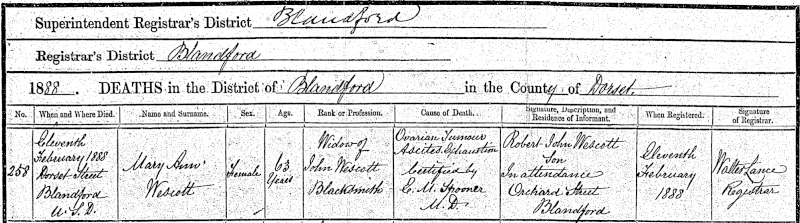 Superintendent Registrar's District Blandford
Registrar's District Blandford
1888. DEATHS in the District of Blandford in the County of Dorset.
No. When and Where Died. Name and Surname. Sex. Age. Rank or Profession. Cause of Death. Signature, Description, and Residence of Informant. When Registered. Signature of Registrar.
258
Eleventh
February 1888
Dorset Street
Blandford
U.S.D.
Mary Ann
Wescott
Female
63
Years
Widow of
John Wescott
Blacksmith
Ovarian Tumour
Ascites Exhaustion
Certified by
C. M. Spooner
M.D.
Robert John Wescott
Son
In attendance
Orchard Street
Blandford
Eleventh
February
1888
Walter Lance
Registrar